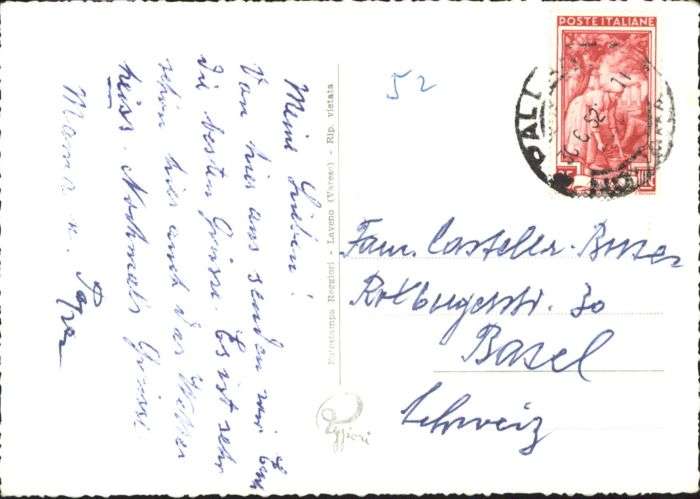 Meine Lieben!
Von hier aus senden wir Euch
die besten Grüsse. Es ist sehr
schön hier und das Wetter
heiss. Nochmals Grüsse
Mama u. Papa
Fotostampa Reggiori - Laveno (Varese) - Rip. vietata
Reggiori
52
POSTE ITALIANE
Fam. Casteller-Buser
Rotbergerstr. 30
Basel
Schweiz